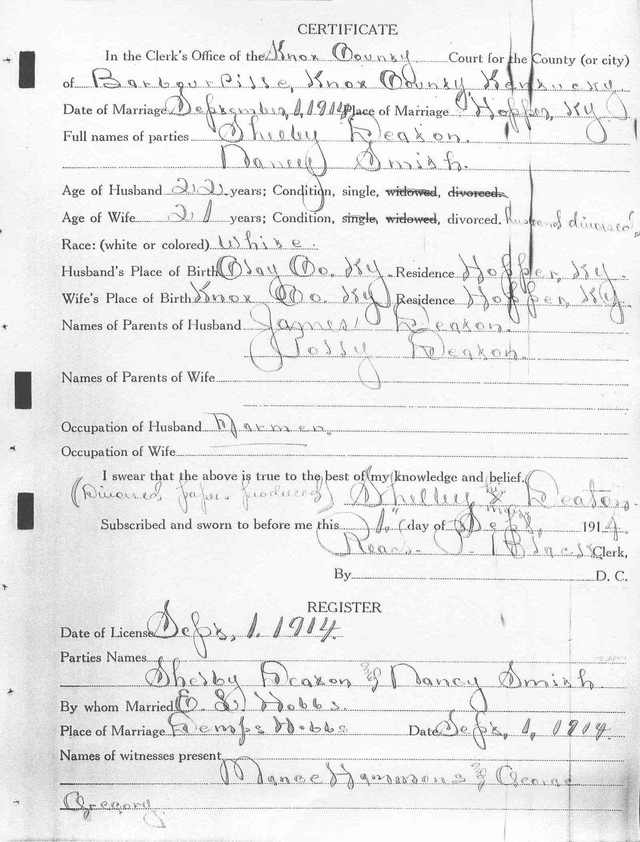 CERTIFICATE
In the Clerk's Office of the Knox County Court for the County (or city)
of Barbourville, Knox County, Kentucky
Date of Marriage September, 1, 1914 Place of Marriage Hopper, Ky
Full names of parties Shelby Deaton.
Nancy Smith.
Age of Husband 22 years; Condition, single, widowed, divorced.
Age of Wife 21 years; Condition, single, widowed, divorced. Husband divorced
Race: (white or colored) White.
Husband's Place of Birth Clay Co. Ky. Residence Hopper, Ky.
Wife's Place of Birth Knox Co. Ky Residence Hopper, Ky.
Names of Parents of Husband James Deaton.
Polly Deaton.
Names of Parents of Wife
Occupation of Husband
Occupation of Wife
I swear that the above is true to the best of my knowledge and belief.
(Divorced papers produced) Shelby his X mark Deaton.
Subscribed and sworn to before me this 1" day of Sept, 1914
Read P. Black Clerk,
By D. C.
REGISTER
Date of License Sept, 1, 1914.
Parties Names
Shelby Deaton & Nancy Smith.
By whom Married E. L. Hobbs.
Place of Marriage Hobbs Date Sept, 1, 1914.
Names of witnesses present
Hammons & George
Gregory.